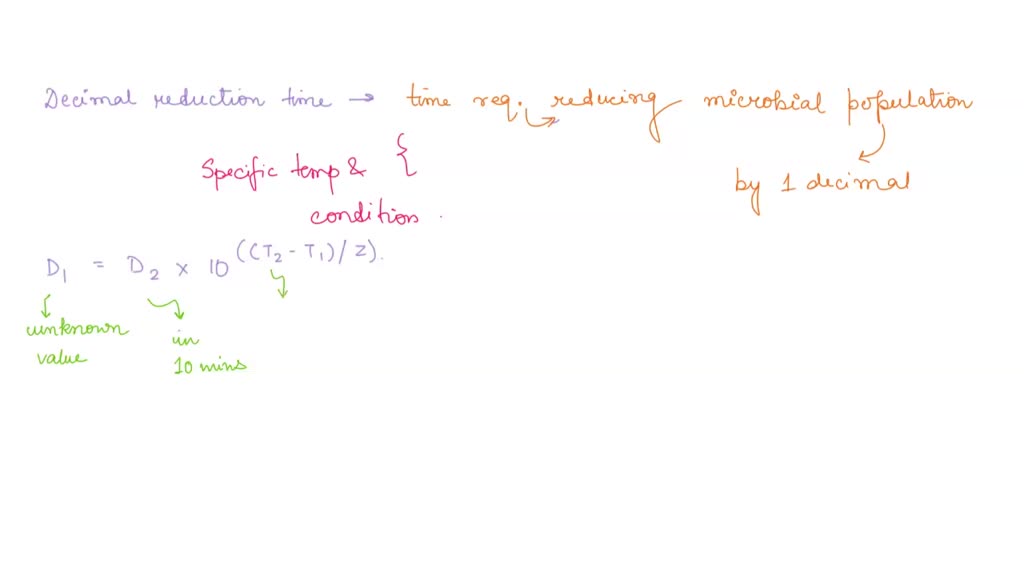 Decimal reduction time → time req. reducing microbial population
Specific temp & {
by 1 decimal
condition .
D₁ = D₂ × 10^((T₂ - T₁)/Z).
unknown
value
in
10 mins